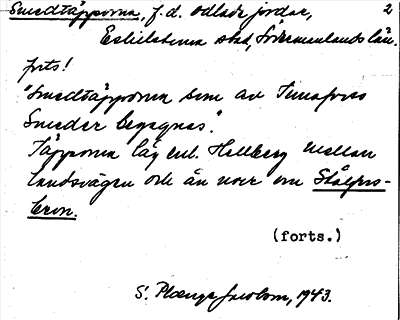 Smedtäpporna, f.d. odlade jordar, 2
Eskilstuna stad, Södermanlands län.
forts!
"Smedtäpporna som av Tunafors
Smeder begagnas."
Täpporna låg enl. Hellberg mellan
landsvägen och ån norr om Stålfors-
bron.
(forts.)
S. Jacobson, 1943.